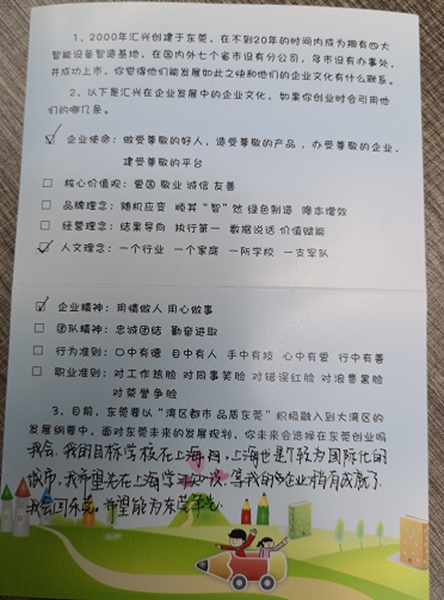 1、2000年汇兴创建于东莞，在不到20年的时间内成为拥有四大
智能设备智造基地，在国内外七个省市设有分公司，多市设有办事处，
并成功上市，你觉得他们能发展如此之快和他们的企业文化有什么联系。
2、以下是汇兴在企业发展中的企业文化，如果你创业时会引用他
们的哪几条。
☑ 企业使命：做受尊敬的好人，造受尊敬的产品，办受尊敬的企业，
建受尊敬的平台
□ 核心价值观：爱国 敬业 诚信 友善
□ 品牌理念：随机应变 顺其“智”然 绿色制造 降本增效
□ 经营理念：结果导向 执行第一 数据说话 价值赋能
☑ 人文理念：一个行业 一个家庭 一所学校 一支军队
☑ 企业精神：用情做人 用心做事
□ 团队精神：忠诚团结 勤奋进取
□ 行为准则：口中有德 目中有人 手中有技 心中有爱 行中有善
□ 职业准则：对工作热脸 对同事笑脸 对错误红脸 对浪费黑脸
对荣誉争脸
3、目前，东莞要以“湾区都市 品质东莞”积极融入到大湾区的
发展纲要中，面对东莞未来的发展规划，你未来会选择在东莞创业吗
我会，我的目标学校在上海，上海也是个较为国际化的
城市，我希望先在上海学习，等我的企业稍有成就了
我会回东莞，希望能为东莞争光.